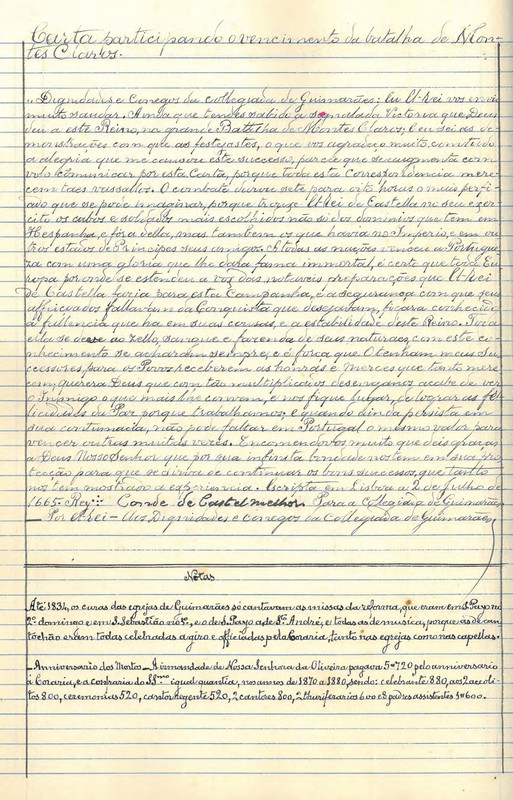 Carta participando o vencimento da batalha de Mon-
tes Claros.
"Dignidades e Conegos da collegiada de Guimarães: Eu El-Rei vos envio
muito saudar. Ainda que tendes sabido a signalada Victoria que Deus
deu a este Reino, na grande Battalha de Montes Claros; e eu sei as de-
monstrações com que as festejastes, o que vos agradeço muito, comtudo
a alegria que me causou este successo, parece que se augmenta com
vol-o communicar por esta Carta, porque toda esta correspondencia mere-
cem taes vassallos. O combate durou sete para oito horas o mais perfi-
ado que se pode imaginar, porque trouxe El-Rei de Castella no seu exer-
cito os cabos e soldados mais escolhidos não só dos dominios que tem em
Hespanha, e fora della, mas tambem os que havia no Imperio, e em ou-
tros estados de Principes seus amigos. A todas as nações venceu a Portugue-
za com uma gloria que lhe dará fama immortal, e é certo que toda Eu-
ropa por onde se estendeu a voz das notaveis preparações que El-Rei
de Castella fazia para esta Campanha, e a segurança com que seus
afficoados fallavam da Conquista que desejavam, ficará conhecida
a fallencia que ha em suas cousas, e a estabilidade deste Reino. Toda
ella se deve ao zello, sangue e fazenda de seus naturaes, com este co-
nhecimento se acharam sempre, e é força que O tenham meus Su-
ccessores, para os Povos receberem as honras e Merces que tanto mere-
cem, Quererá Deus que com tão multiplicados desenganos acabe de ver
o Inimigo o que mais lhe convem, e nos fique lugar, de lograr as feli-
cidades da Paz porque trabalhamos, e quando ainda persista em
sua contumacia, não pode faltar em Portugal o mesmo valor para
vencer outras muitas vezes. Encomendo-vos muito que deis graças
a Deus Nosso Senhor que por sua infinita bondade nos tem em sua pro-
tecção para que se sirva de continuar os bons successos, que tanto
nos tem mostrado a experiencia. Escripta em Lisboa a 2 de Julho de
1665- Rey::: Conde de Castelmelhor Para a Collegiada de Guimarães
— Por El-Rei — Aos Dignidades e conegos da Collegiada de Guimarães,
Notas
Até 1834, os curas das egrejas de Guimarães só cantavam as missas da reforma, que eram em S. Payo no
2º domingo e em S. Sebastião no 3º, e o de S. Payo a de Sto André, e todas as de musica, porque as de can-
tochão eram todas celebradas a giro e officiadas pela Coraria, tanto nas egrejas como nas capellas.
— Anniversario dos Mortos — A irmandade de Nossa Senhora da Oliveira pagava 5#720 pelo anniversario
á Coraria, e a confraria do SS.mo igual quantia, nos annos de 1870 a 1880, sendo: celebrante 880, aos 2 accoli-
tos 800, ceremonias 520, cantor regente 520, 2 cantores 800, 2 thuriferarios 600 e 8 padres assistentes 1#600.